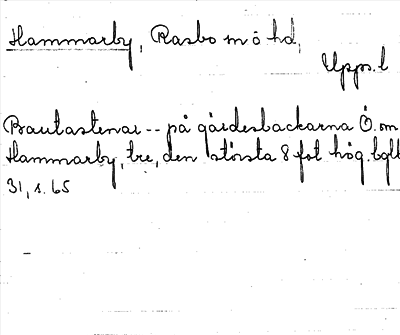 Hammarby, Rasbo m ö hd,
Upps. l
Bautastenar -- på gärdesbackarna Ö. om
Hammarby, tre, den största 8 fot hög. bglb
31, s. 65